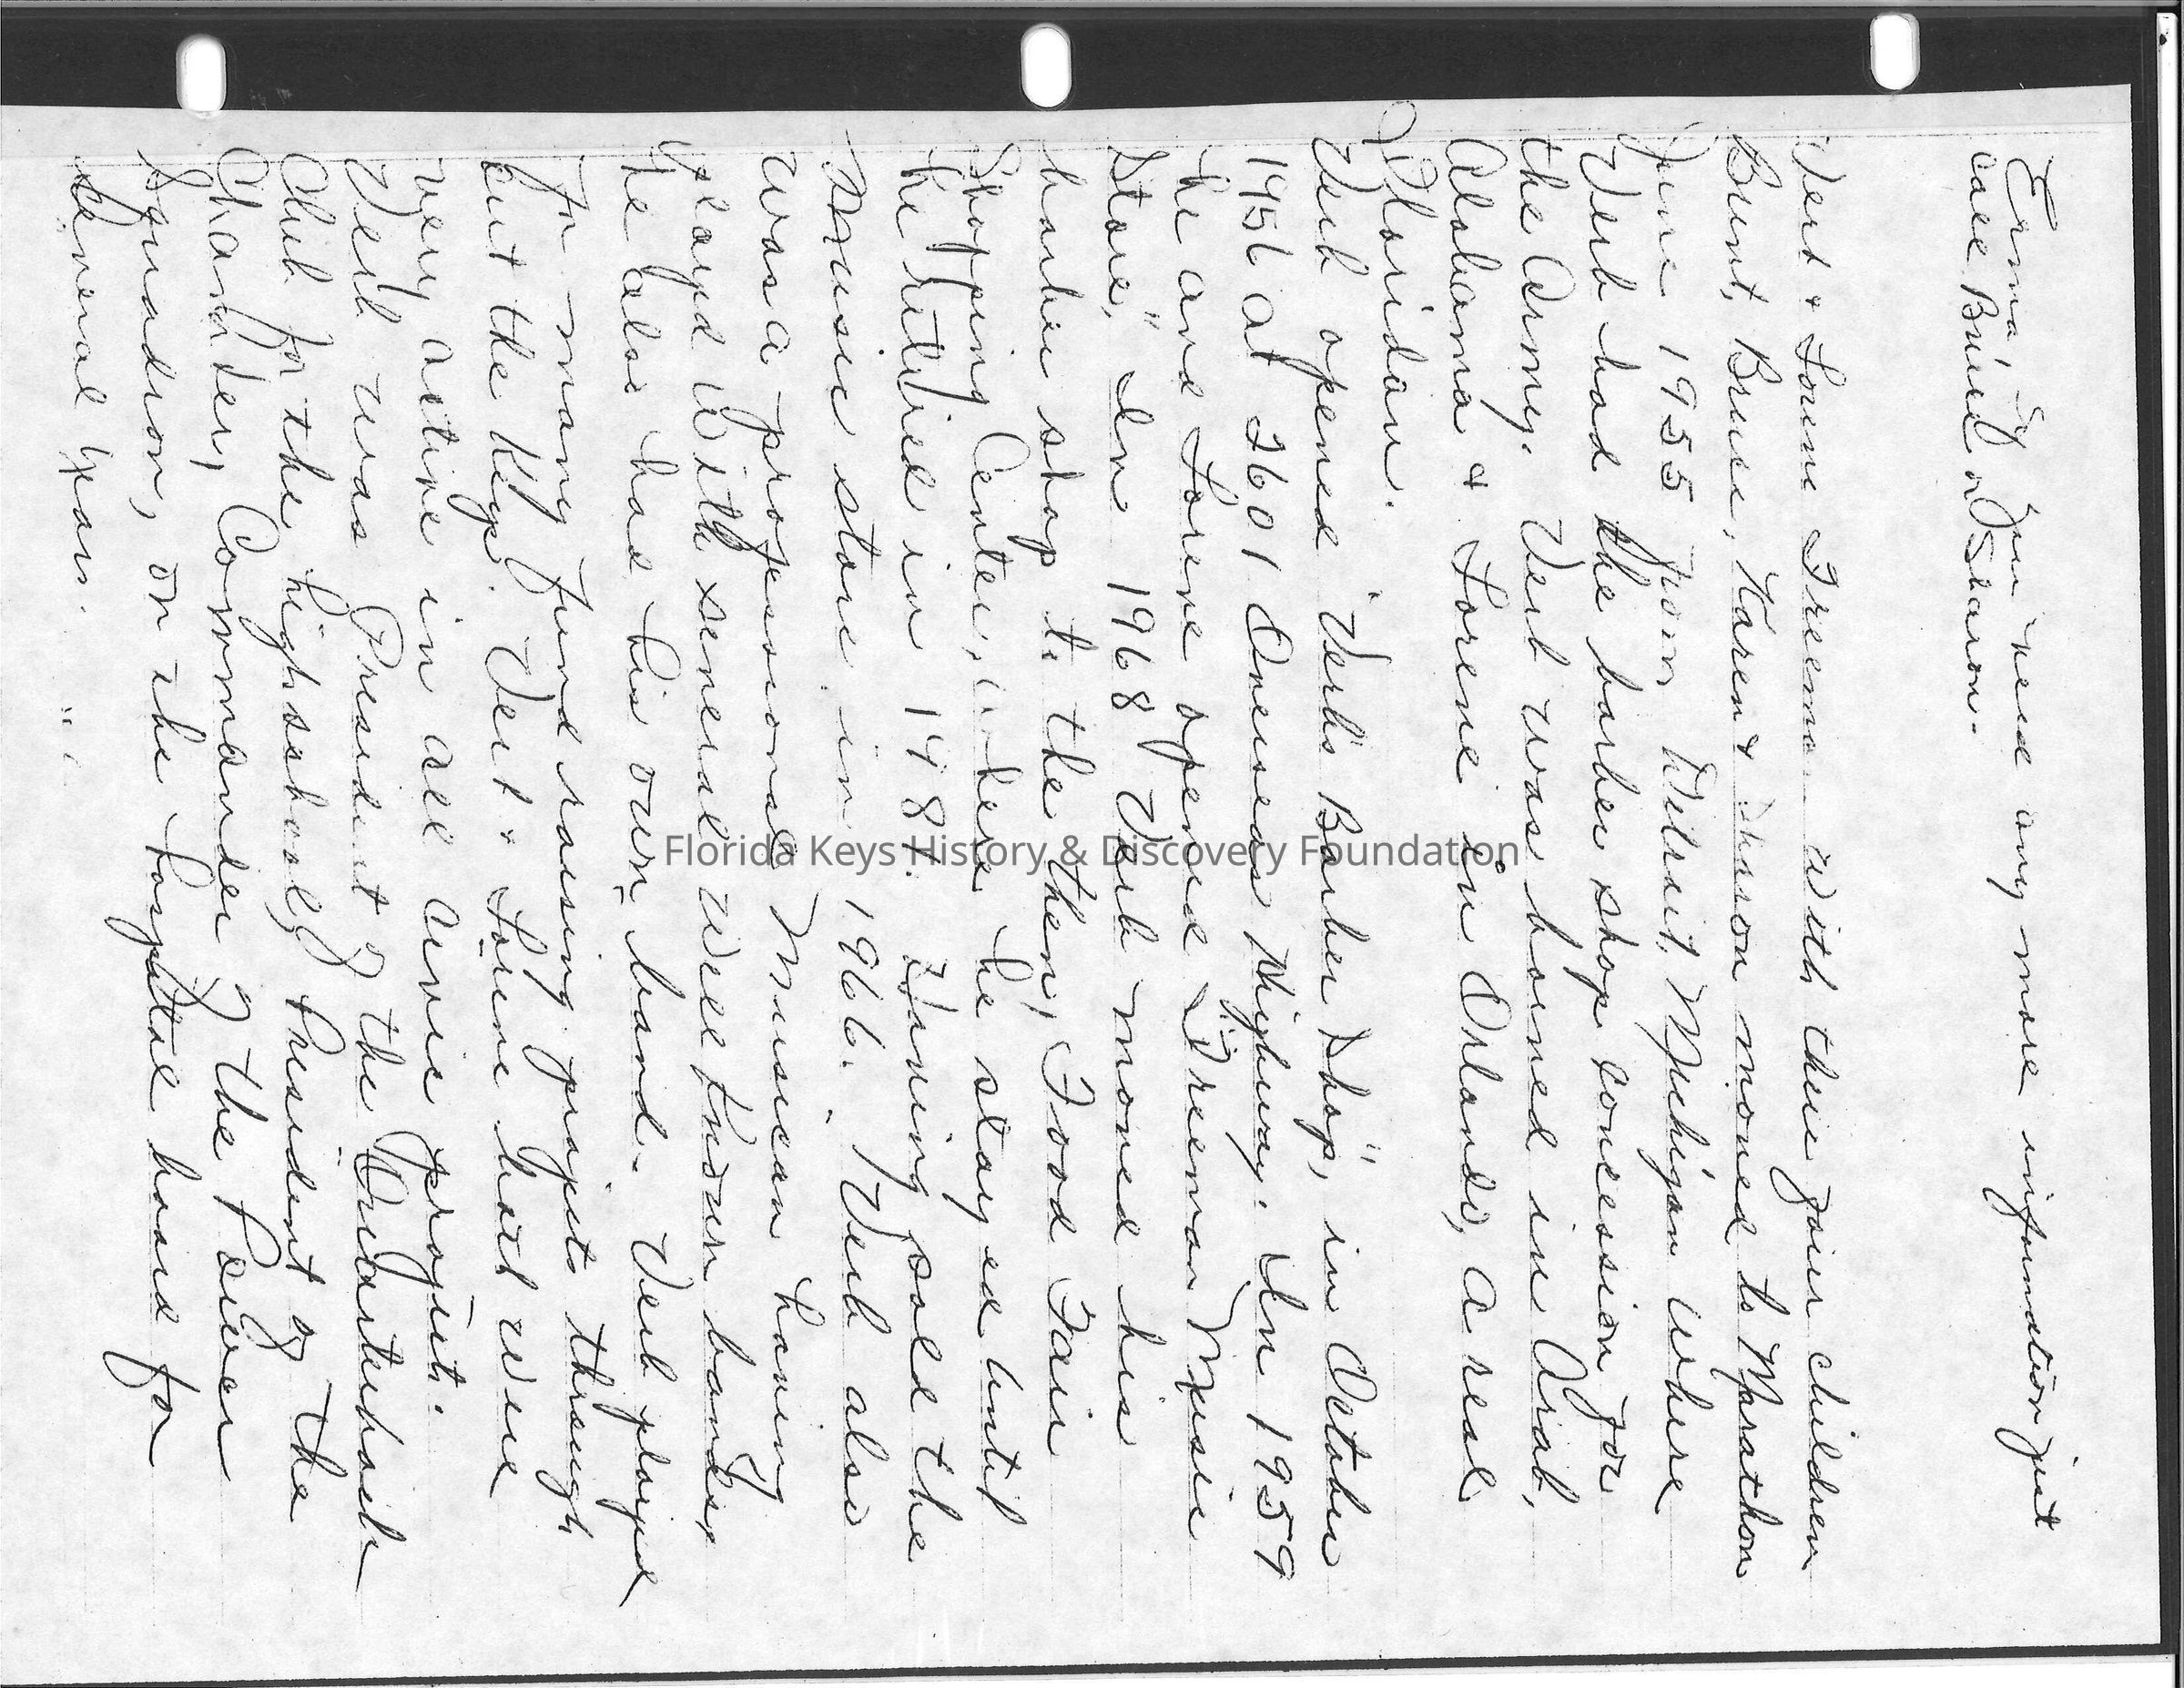 Erma, If you need any more information just
call Bruce or Sharon.
Verb & Lorene Freeman with their four children
Brent, Bruce, Karen & Sharon moved to Marathon
June 1955 from Detroit, Michigan where
Verb had the barber shop concession for
the Army. Verb was borned in Arab,
Alabama & Lorene in Orlando, a real
Floridan.
Verb opened "Verbs Barber Shop", in October
1956 at 2601 Overseas Highway. In 1959
he and Lorene opened "Freeman Music
Store", In 1968 Verb moved his
barber shop to the then, Food Fair
Shopping Center, where he stayed until
he retired in 1981. Having sold the
Music store in 1966. Verb also
was a professional Musician having
played with several well known bands,
He also had his own band. Verb played
for many fund raising projects through
out the Keys. Verb & Lorene both were
very active in all civic projects.
Verb was President of the Quarterback
Club for the high school, President of the
Chamber, Commander of the Power
Squadron, on the hospital board for
several years.